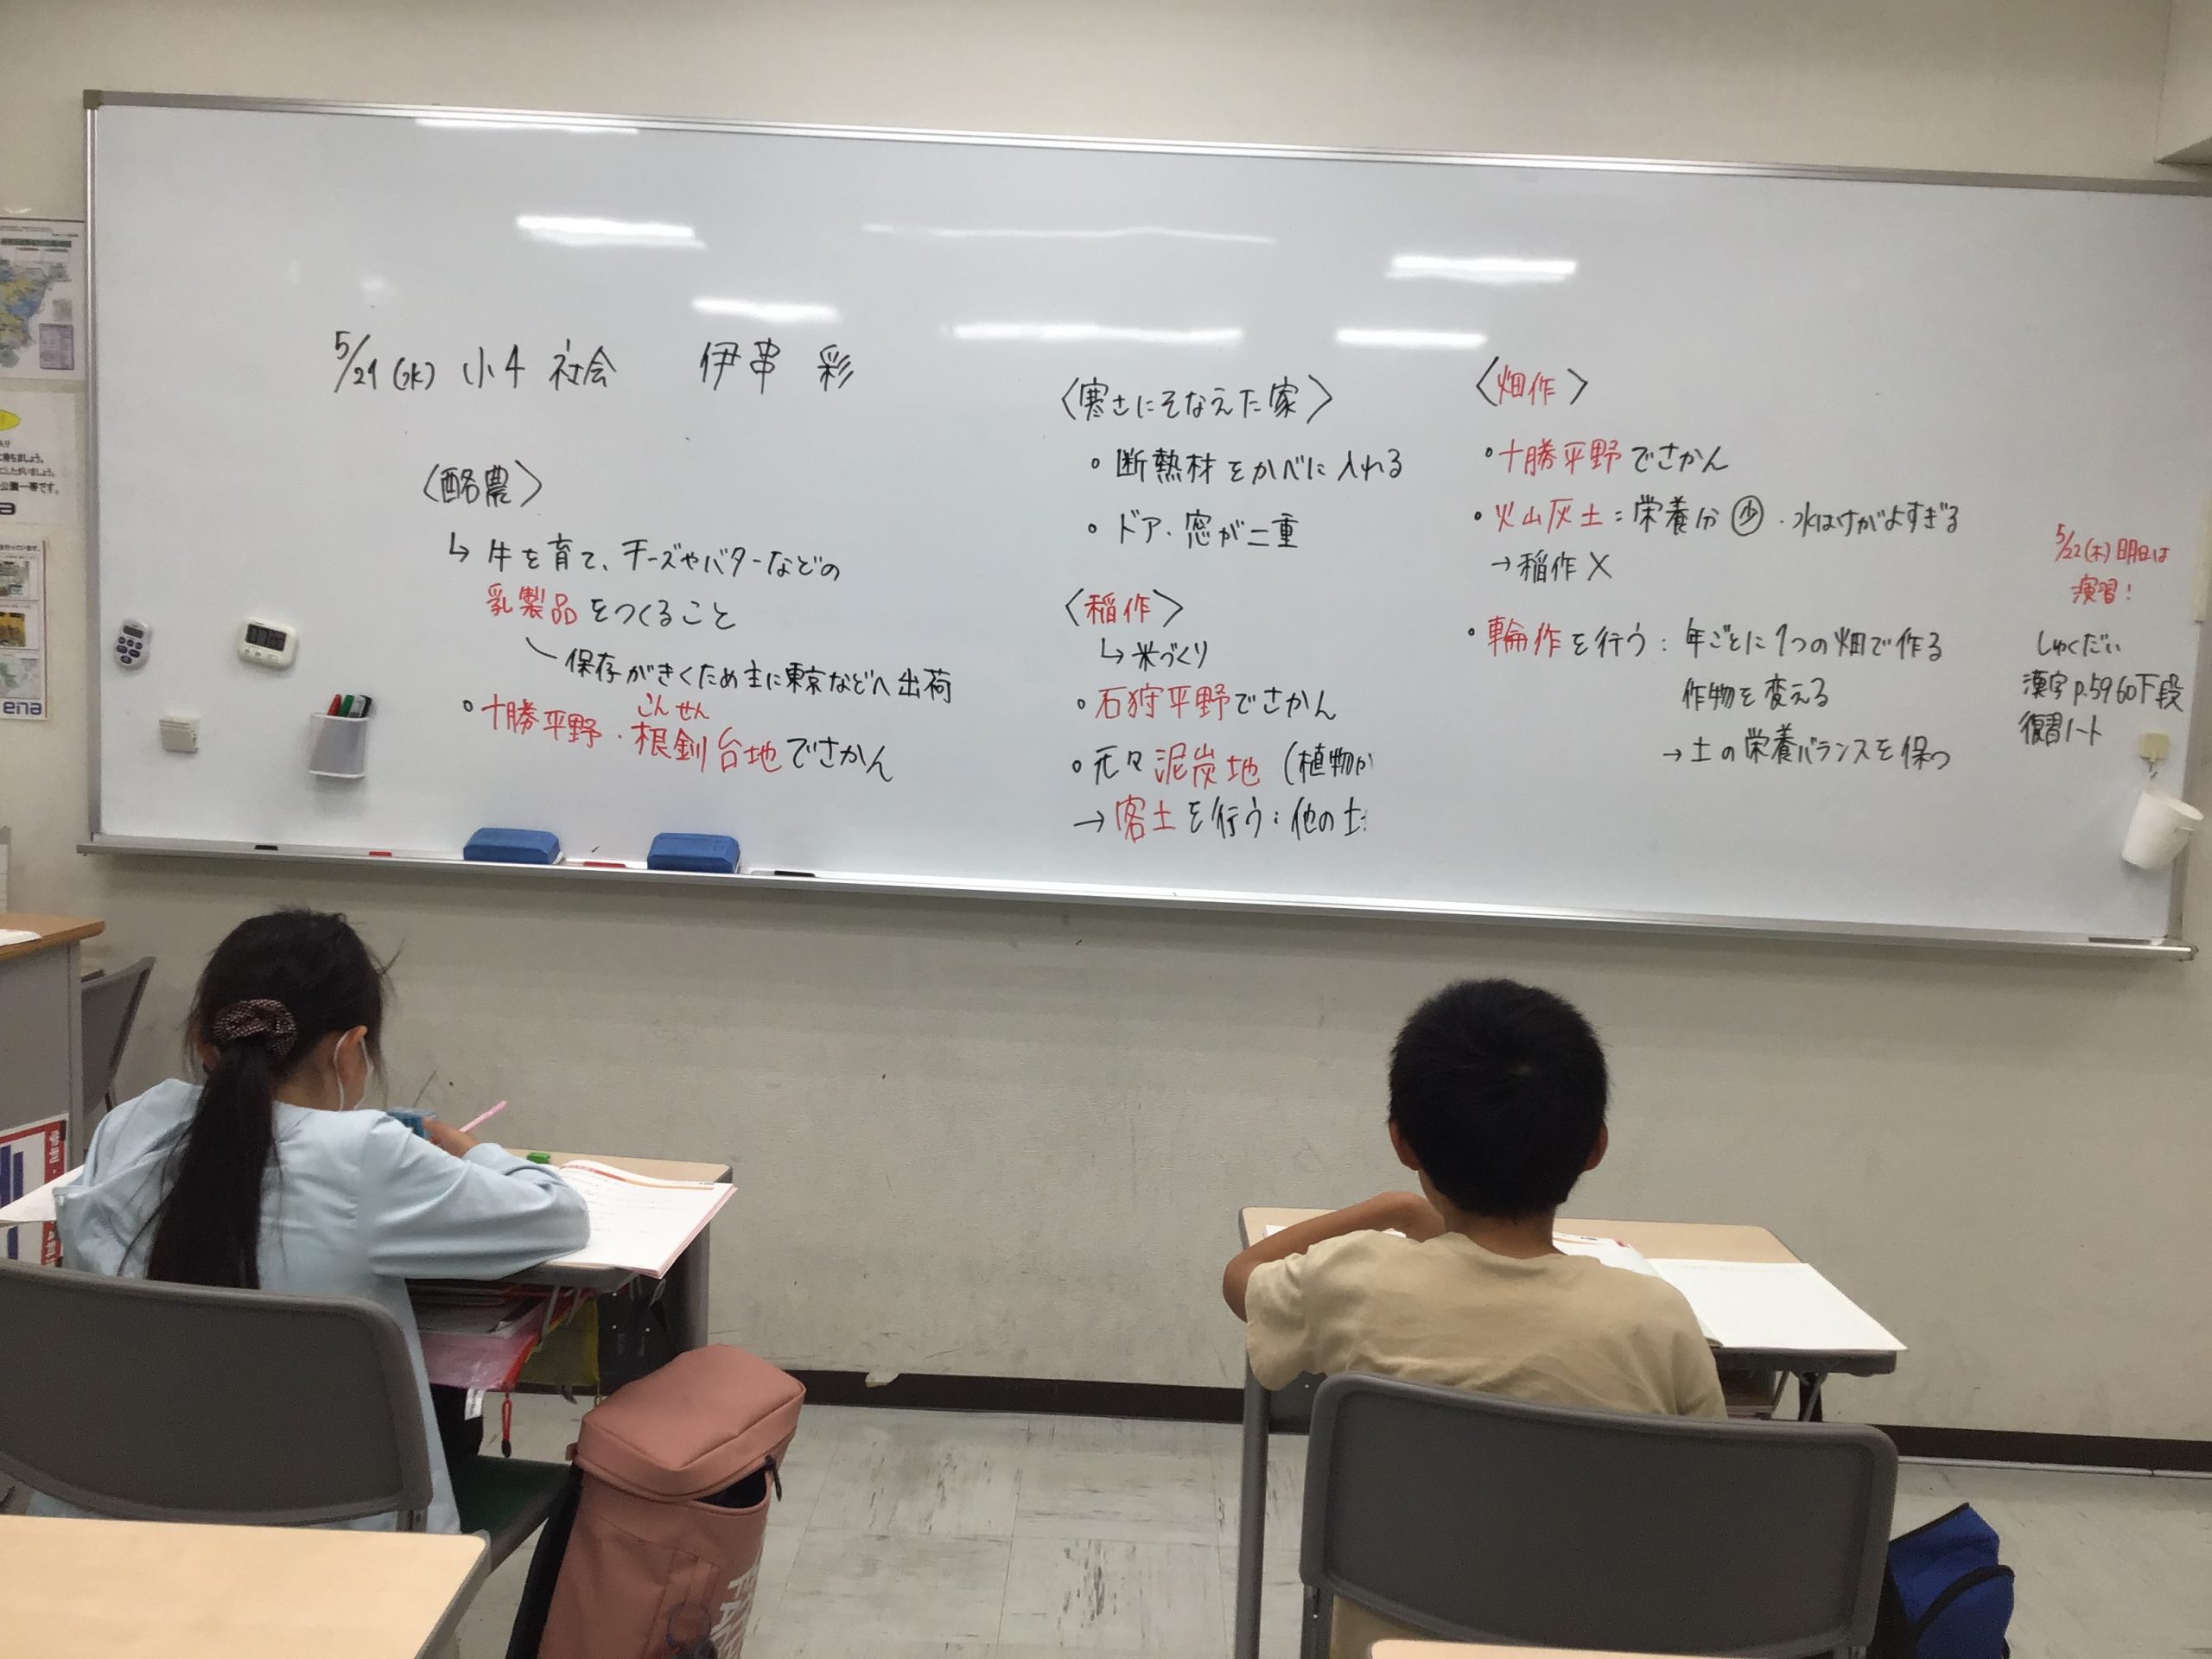 5/21(水) 小4 社会 伊串 彩
〈酪農〉
↳ 牛を育て、チーズやバターなどの
乳製品をつくること
保存がきくため主に東京などへ出荷
こんせん
・十勝平野・根釧台地でさかん
〈寒さにそなえた家〉
・断熱材をかべに入れる
・ドア・窓が二重
〈稲作〉
↳米づくり
・石狩平野でさかん
・元々泥炭地(植物が
→客土を行う:他の土
〈畑作〉
・十勝平野でさかん
・火山灰土:栄養分少・水はけがよすぎる
→稲作X
・輪作を行う:年ごとに1つの畑で作る
作物を変える
→土の栄養バランスを保つ
5/22(木)明日は
演習!
しゅくだい
漢字p.59 60下段
復習ノート
持ちましょう。
公園一帯です。
ena